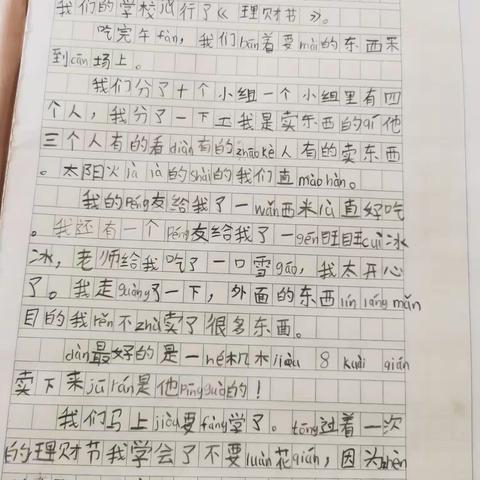 我们的学校进行了《理财节》。
吃完午fàn，我们bān着要mài的东西来
到cāo场上。
我们分了十个小组一个小组里有四
个人，我分了一下工我是卖东西的qí他
三个人有的看diàn有的zhāo kè人有的卖东西
。太阳火là là的shài的我们直mào hàn。
我的péng友给我了一wǎn西米lù直好吃
。我还有一个péng友给我了一gēn旺旺cuì冰
冰，老师给我吃了一口雪gāo，我太开心
了。我走guàng了一下，外面的东西lín láng mǎn
目的我rěn不zhù卖了很多东西。
dàn最好的是一hé积木jiàu 8 kuài qián
卖下来jū rán是他píng guò的！
我们马上jiòu要fàng学了。tōng过着一次
的理财节我学会了不要luàn花qián，因为hěn